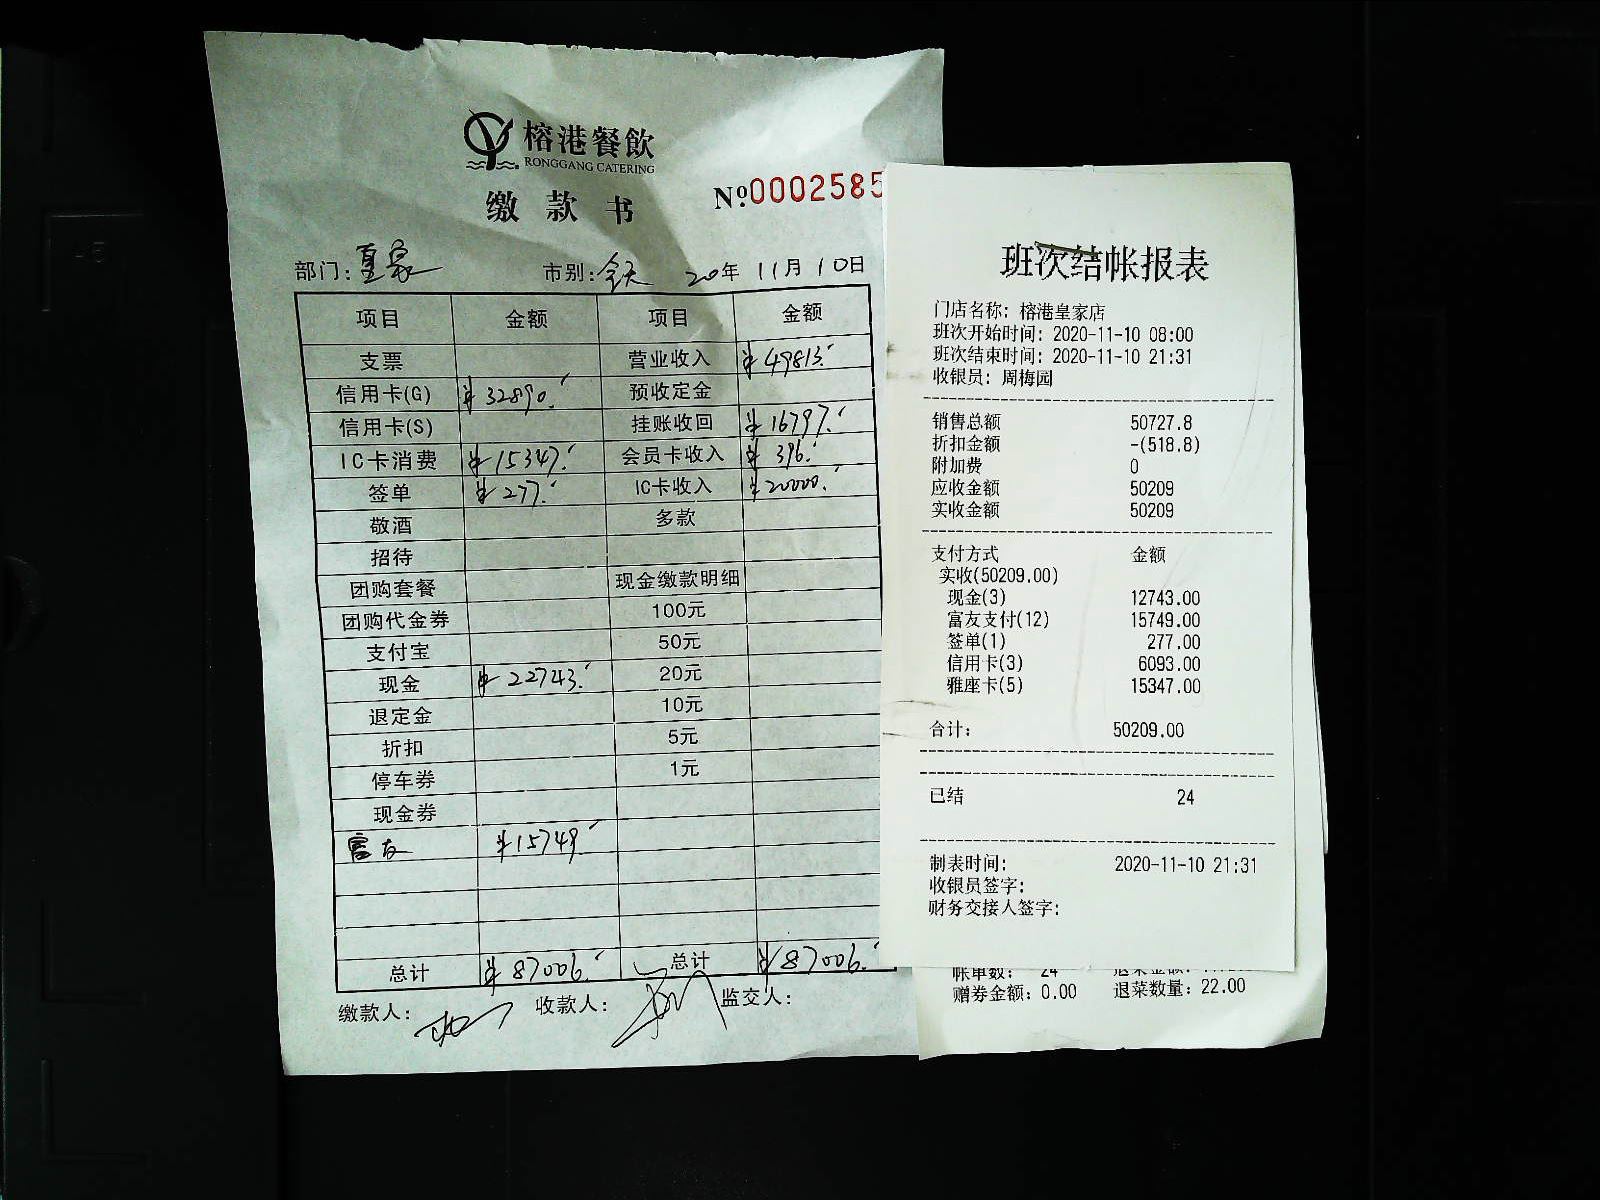 榕港餐飲
RONGGANG CATERING
缴款书
№0002585
部门：皇家 市别：全天 20年 11月 10日
项目 金额 项目 金额
支票 营业收入 ¥49813.
信用卡(G) ¥32890. 预收定金
信用卡(S) 挂账收回 ¥16797.
IC卡消费 ¥15347. 会员卡收入 ¥396.
签单 ¥277. IC卡收入 ¥20000.
敬酒 多款
招待
团购套餐 现金缴款明细
团购代金券 100元
支付宝 50元
现金 ¥22743. 20元
退定金 10元
折扣 5元
停车券 1元
现金券
富友 ¥15749
总计 ¥87006. 总计 ¥87006.
缴款人： 收款人： 监交人：
班次结帐报表
门店名称: 榕港皇家店
班次开始时间: 2020-11-10 08:00
班次结束时间: 2020-11-10 21:31
收银员: 周梅园
销售总额 50727.8
折扣金额 -(518.8)
附加费 0
应收金额 50209
实收金额 50209
支付方式 金额
实收(50209.00)
现金(3) 12743.00
富友支付(12) 15749.00
签单(1) 277.00
信用卡(3) 6093.00
雅座卡(5) 15347.00
合计: 50209.00
已结 24
制表时间: 2020-11-10 21:31
收银员签字:
财务交接人签字:
帐单数: 24
赠券金额: 0.00 退菜数量: 22.00